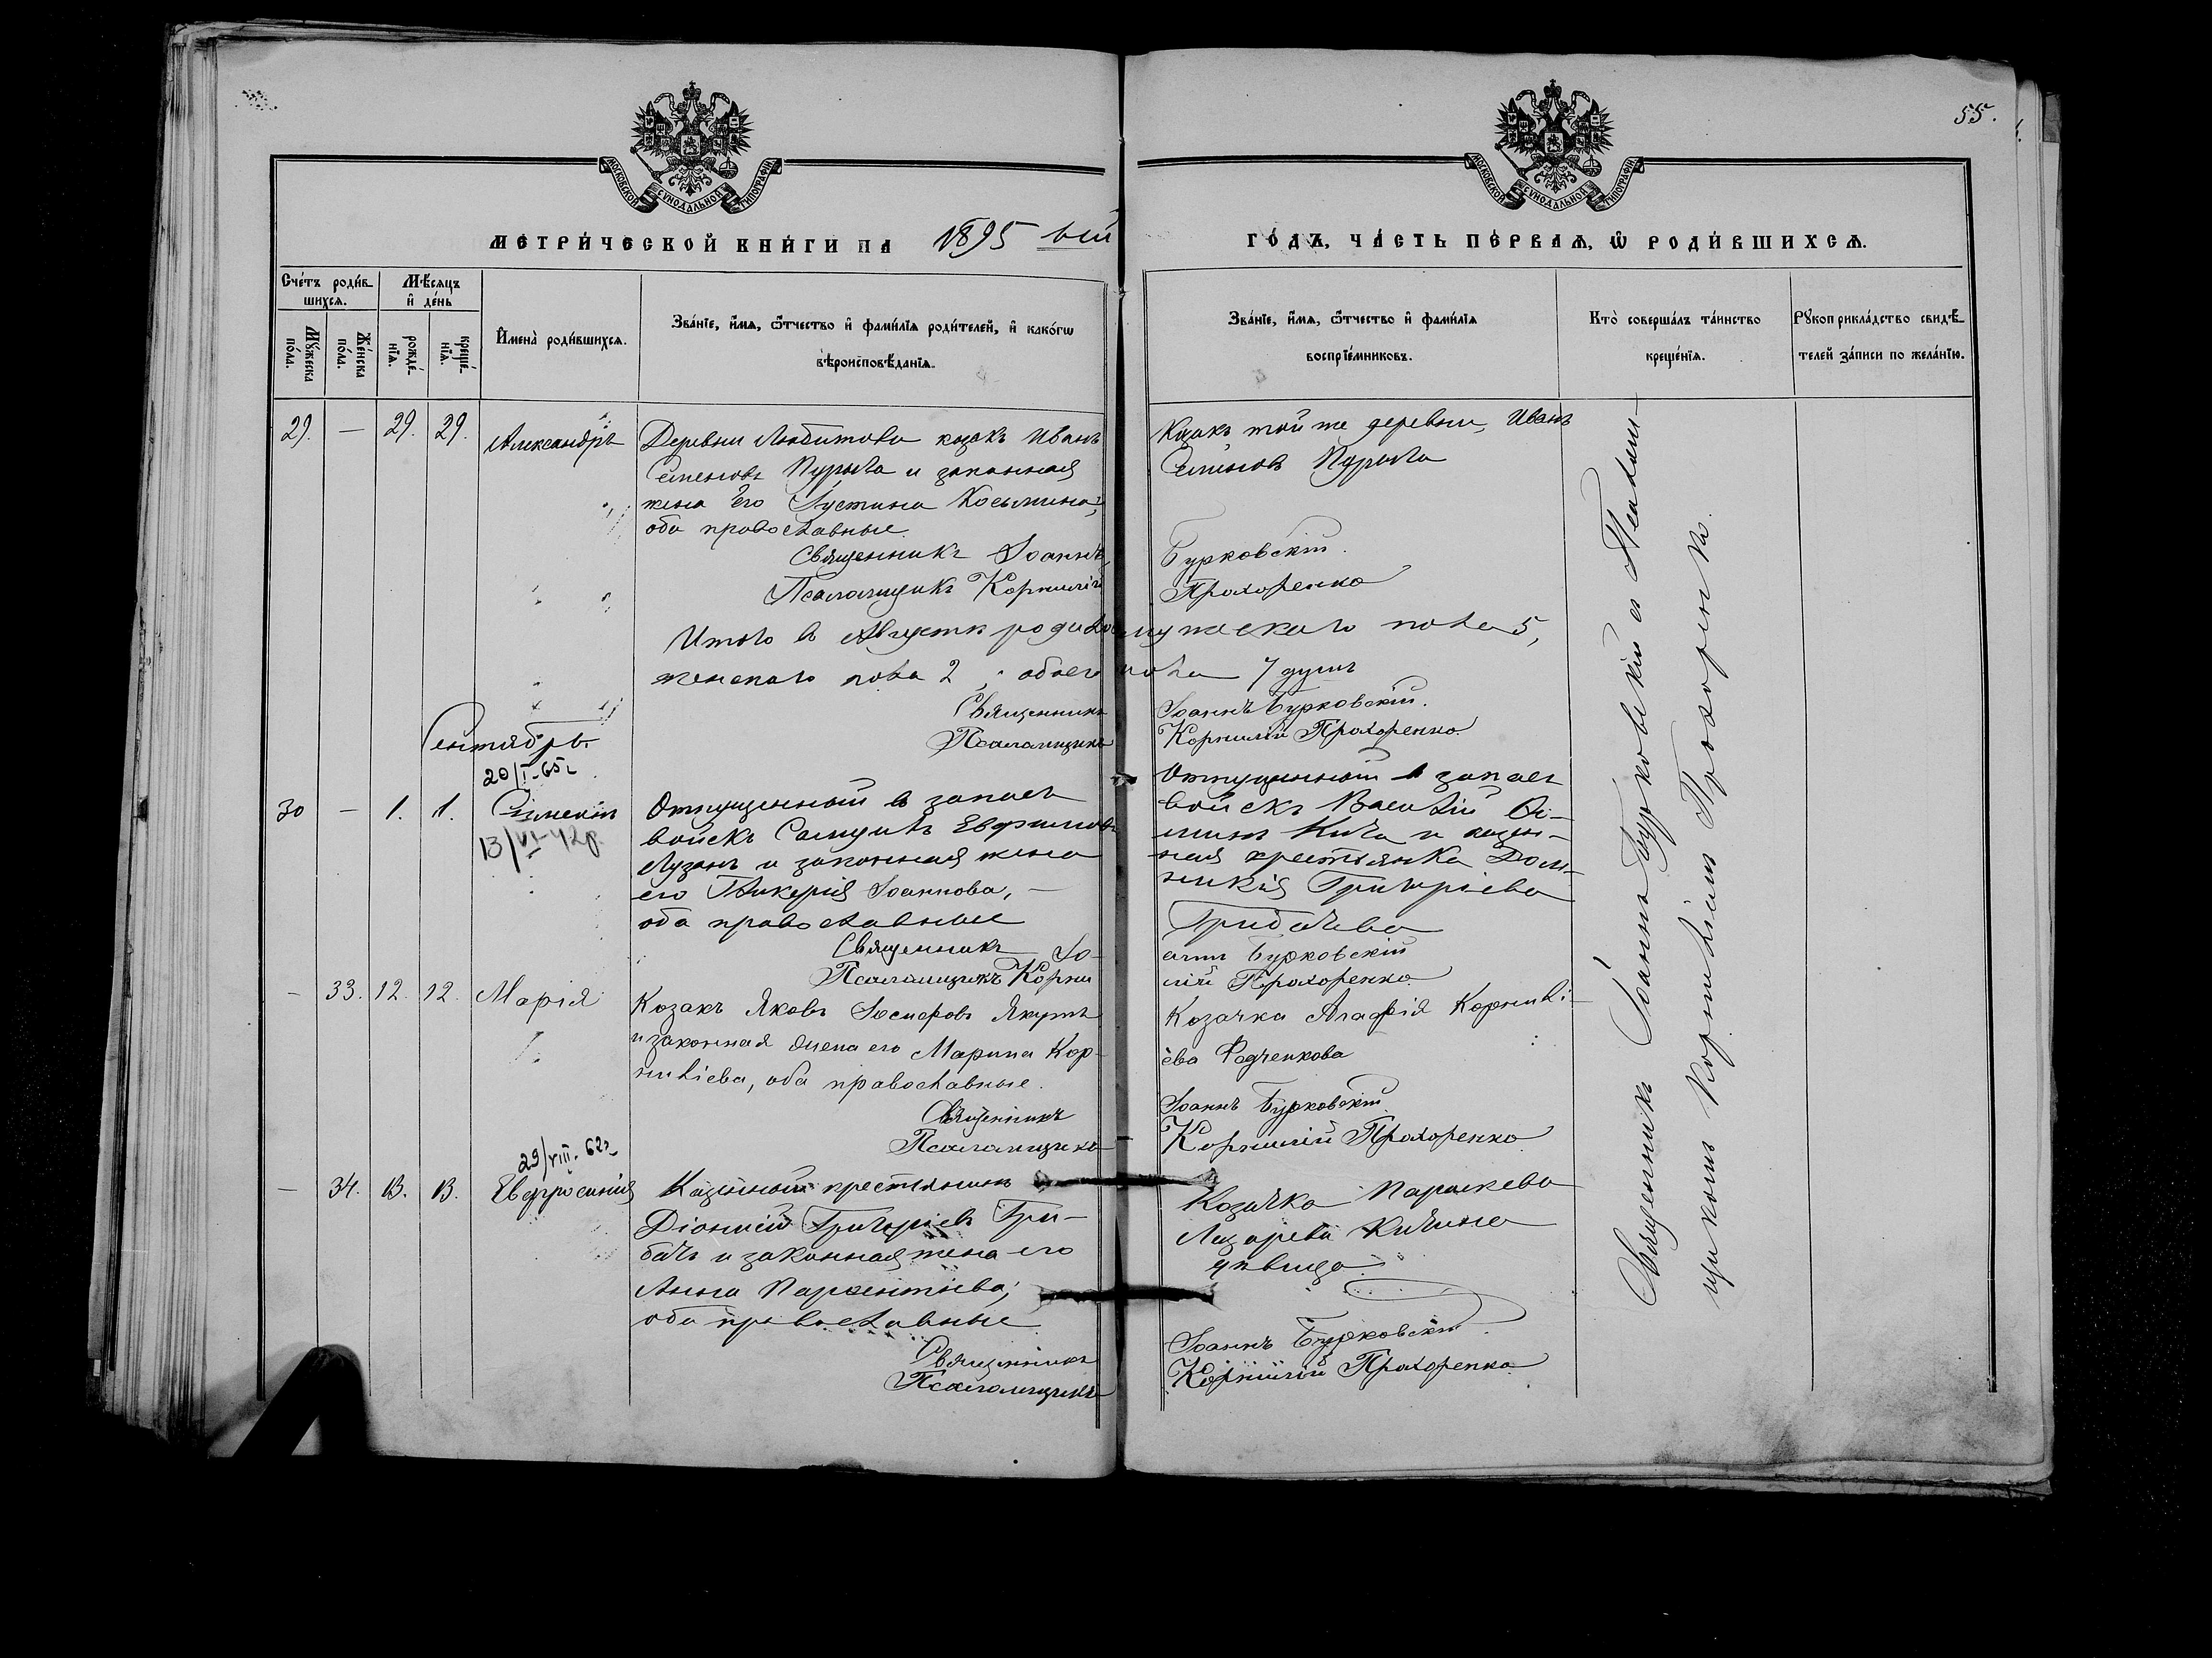 55.
МОСКОВСКОЙ СУНОДАЛЬНОЙ ТИПОГРАФІИ
МОСКОВСКОЙ СУНОДАЛЬНОЙ ТИПОГРАФІИ
МЕТРИ́ЧЕСКОЙ КНИ́ГИ НА 1895 ый
ГО́ДЪ, ЧА́СТЬ ПЕ́РВАѦ, Ѡ РОДИ́ВШИХСѦ.
Сче́тъ роди́в-
шихсѧ.
Му́жеска
по́ла.
Же́нска
по́ла.
Мѣ́сѧцъ
и҆ де́нь
рожде́-
нїѧ.
креще́-
нїѧ.
И҆мена̀ роди́вшихсѧ.
Зва́нїе, и҆́мѧ, ѻ҆́тчество и҆ фами́лїѧ роди́телей, и҆ како́гѡ
вѣроисповѣ́данїѧ.
Зва́нїе, и҆́мѧ, ѻ҆́тчество и҆ фами́лїѧ
воспрїе́мниковъ.
Кто̀ соверша́лъ та́инство
креще́нїѧ.
Рꙋкоприкла́дство свидѣ́-
телей за́писи по жела́нїю.
29. — 29. 29. Александръ
Деревни Любитова козакъ Иванъ
Семеновъ Пурыга и законная
жена его Іустина Косьмина,
оба православные.
Священникъ Іоаннъ
Псаломщикъ Корнилій
Козакъ той же деревни, Иванъ
Семеновъ Пурыга
Бурковскій.
Прохоренко
Итого въ Августѣ родилось мужескаго пола 5,
женскаго пола 2, обоего пола 7 душъ
Священникъ Іоаннъ Бурковскій.
Псаломщикъ Корнилій Прохоренко.
Сентябрь.
20/I-65г
30 — 1. 1. Симеонъ
13/VI-42р.
Отпущенный въ запасъ
войскъ Самуилъ Евфимовъ
Лузанъ и законная жена
его Гликерія Іоаннова, —
оба православные
Священникъ Іо-
Псаломщикъ Корни
Отпущенный в запасъ
войскъ Василій
Кича и казен-
ная крестьянка Дом-
никія Григоріева
Грибачева
аннъ Бурковскій
лій Прохоренко.
— 33. 12. 12. Марія
Козакъ Яковъ Іосифовъ
и законная жена его Марина Кор-
ниліева, оба православные.
Священникъ
Псаломщикъ
Козачка Агафія Корнилі-
ева Федченкова
Іоаннъ Бурковскій
Корнилій Прохоренко
29/VIII. 62г
— 34. 13. 13. Евфросинія
Казенный крестьянинъ
Діонисій Григоріевъ Гри-
бачъ и законная жена его
Анна Парфентіева,
оба православные
Священникъ
Псаломщикъ
Козачка Параскева
Лазарева Кичина
дѣвица.
Іоаннъ Бурковскій.
Корнилій Прохоренко
Священникъ Іоаннъ Бурковскій съ Псалом-
щикомъ Корниліемъ Прохоренко.